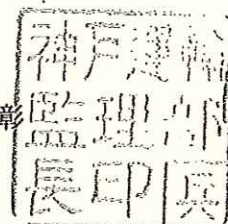 彰
神戸運輸
監理部
長印兵